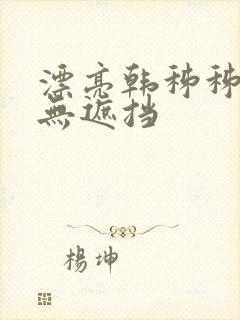 漂亮韩秭秭
無遮挡
楊坤